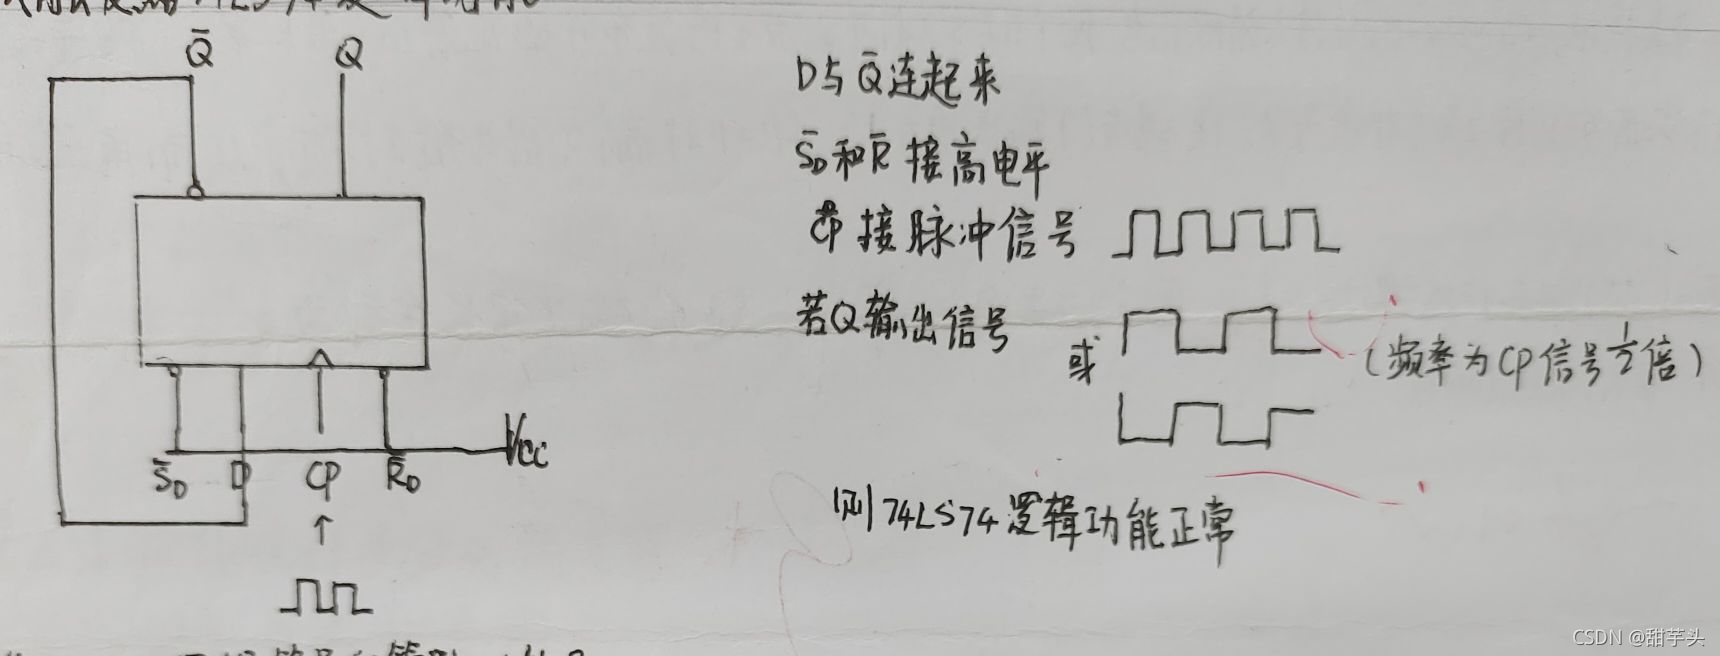 Q̄ Q
D与Q̄连起来
S̄D和R̄接高电平
CP接脉冲信号
若Q输出信号
或
(频率为CP信号1/2倍)
Vcc
S̄D D CP R̄D
则74LS74逻辑功能正常
CSDN @甜芋头